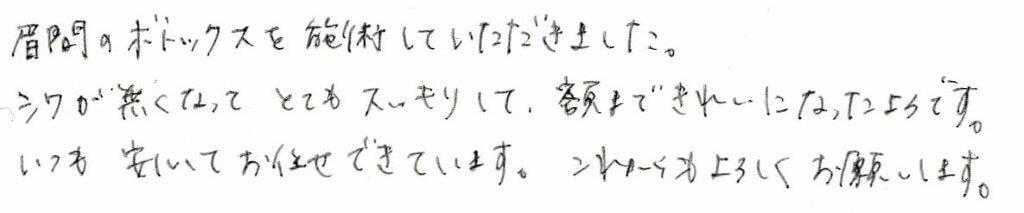 眉間のボトックスを施術していただきました。
シワが無くなって とても スッキリして、額まできれいになったようです。
いつも 安心してお任せできています。これからもよろしくお願いします。